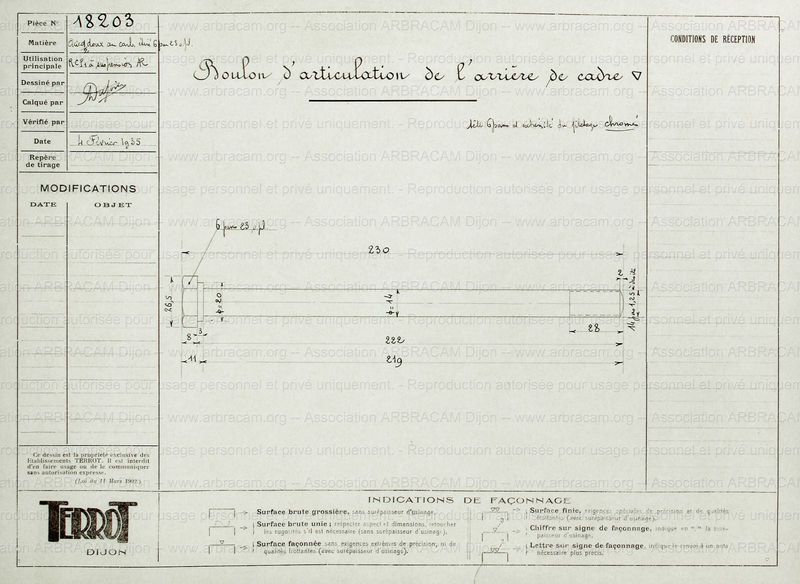 Pièce N° 18203
Matière Acier doux au carb. étiré 6 pans 23 s/pl.
Utilisation
principale
Dessiné par
Calqué par
Vérifié par
Date 4 Février 1935
Repère
de tirage
MODIFICATIONS
DATE OBJET
Boulon d'articulation de l'arrière de cadre ▽
tête 6 pans et extrémité du filetage chromé
CONDITIONS DE RÉCEPTION
6 pans 23 s/pl.
230
2
26,5
ϕ=20
ϕ=14
14 pas 1,25 à droite
3
8
28
222
11
219
Ce dessin est la propriété exclusive des
Etablissements TERROT. Il est interdit
d'en faire usage ou de le communiquer
sans autorisation expresse.
(Loi du 11 Mars 1902)
TERROT
DIJON
INDICATIONS DE FAÇONNAGE
Surface brute grossière, sans surépaisseur d'usinage.
Surface brute unie ; respecter aspect et dimensions, retoucher
les rugosités s'il est nécessaire (sans surépaisseur d'usinage).
Surface façonnée sans exigences extrêmes de précision, ni de
qualités frottantes (avec surépaisseur d'usinage).
Surface finie, exigences spéciales de précision et de qualités
frottantes (avec surépaisseur d'usinage).
Chiffre sur signe de façonnage, indique en m/m la surépaisseur d'usinage.
Lettre sur signe de façonnage, indique le renvoi à un autre
nécessaire plus précis.
www.arbracam.org -- Association ARBRACAM Dijon -- www.arbracam.org -- Association ARBRACAM Dijon
usage personnel et privé uniquement. - Reproduction autorisée pour usage personnel et privé uniquement.